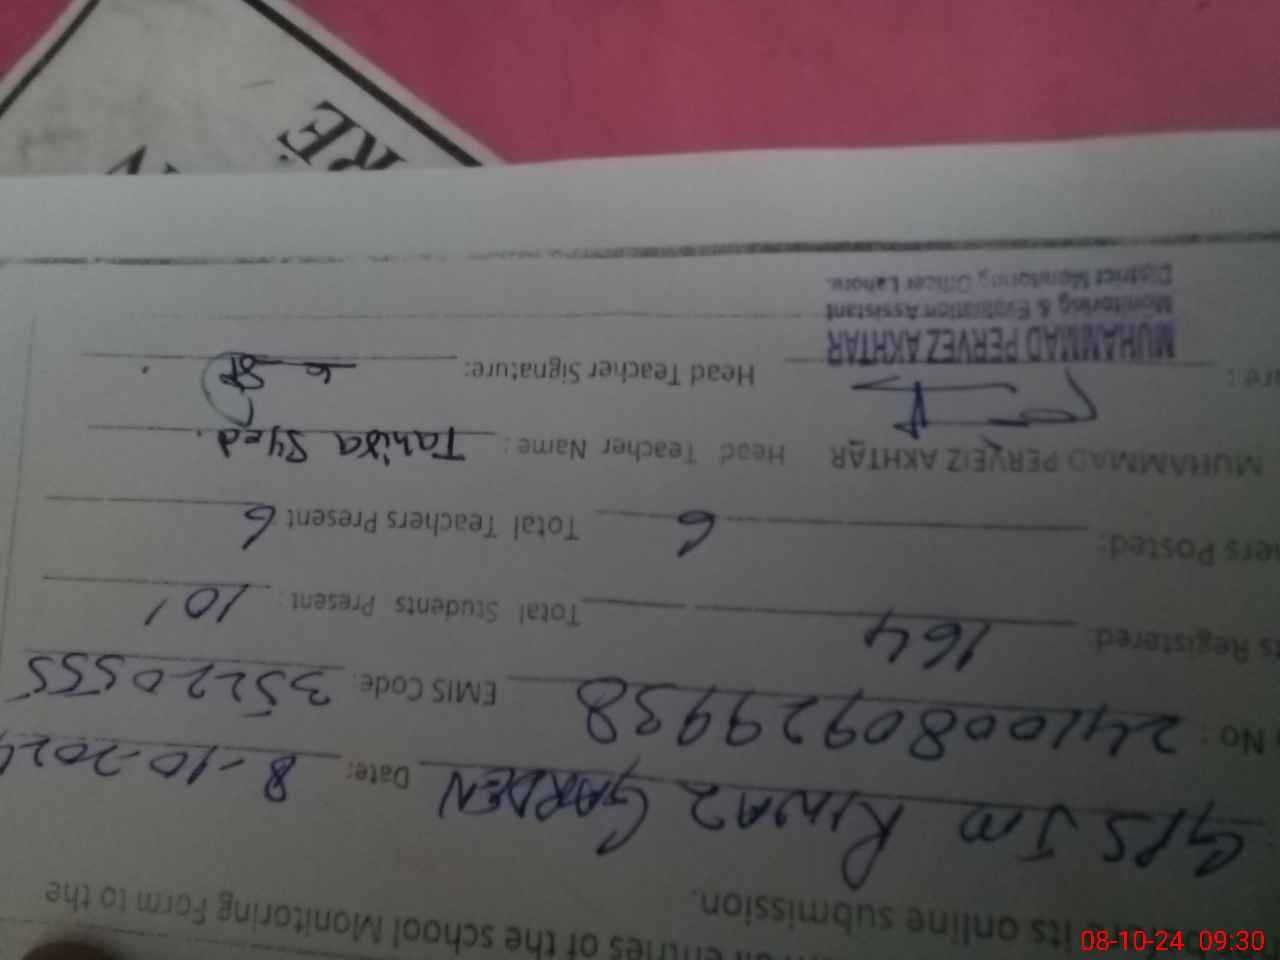 entries of the school Monitoring Form to the
its online submission.
GPS JM RIWAZ GARDEN Date: 8-10-2024
No: EMIS Code: 35220555
ts Registered: 164 Total Students Present: 101
ers Posted: 6 Total Teachers Present 6
MUHAMMAD PERVEIZ AKHTAR Head Teacher Name: Tahira Syed.
re: Head Teacher Signature:
MUHAMMAD PERVEZ AKHTAR
Monitoring & Evaluation Assistant
District Monitoring Officer Lahore.
RE
08-10-24 09:30